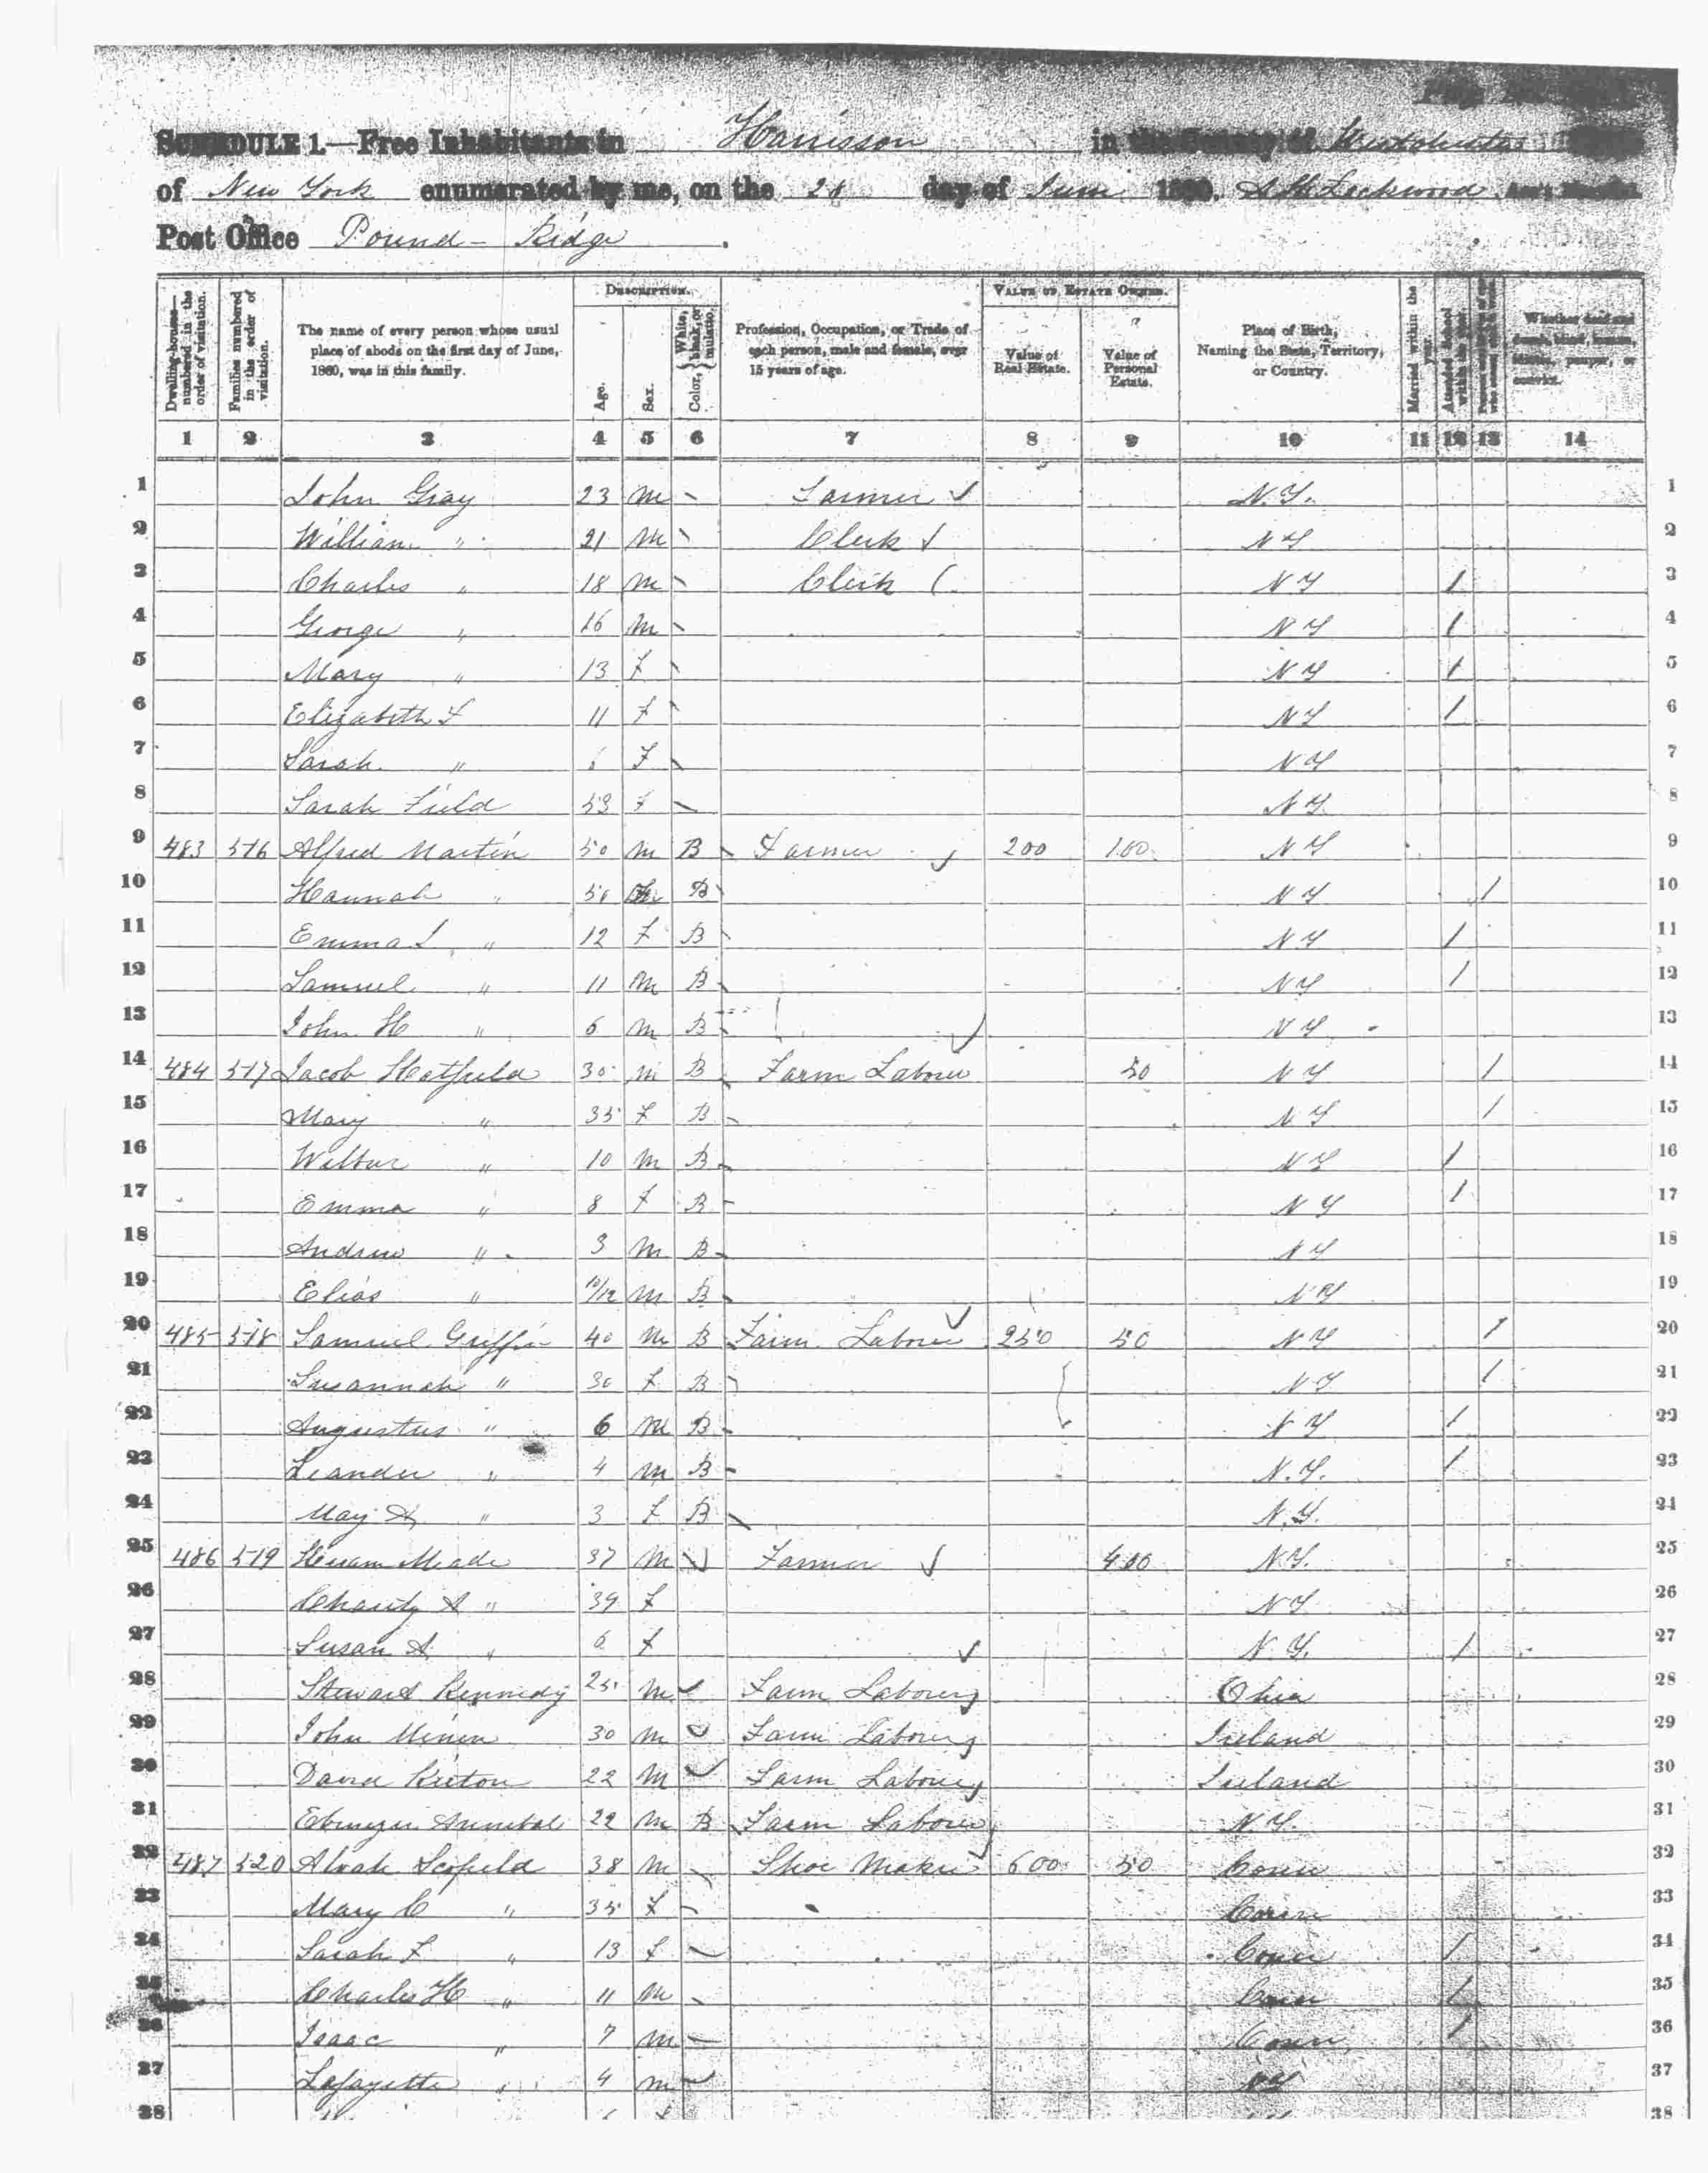 SCHEDULE 1.—Free Inhabitants in Harrisson in the County of Westchester
of New York enumerated by me, on the 28 day of June 1860. Lockwood Ass't Marshal.
Post Office Pound-Ridge.
Dwelling-houses—numbered in the order of visitation.
Families numbered in the order of visitation.
The name of every person whose usual place of abode on the first day of June, 1860, was in this family.
DESCRIPTION.
Age.
Sex.
Color, White, black, or mulatto.
Profession, Occupation, or Trade of each person, male and female, over 15 years of age.
VALUE OF ESTATE OWNED.
Value of Real Estate.
Value of Personal Estate.
Place of Birth, Naming the State, Territory, or Country.
Married within the year.
Attended School within the year.
Whether deaf and dumb, blind, insane, idiotic, pauper, or convict.
1 2 3 4 5 6 7 8 9 10 11 12 13 14
1 John Gray 23 M Farmer N.Y. 1
2 William " 21 M Clerk NY 2
3 Charles " 18 M Clerk NY / 3
4 George " 16 M NY / 4
5 Mary " 13 F NY / 5
6 Elizabeth F 11 F NY / 6
7 Sarah " F NY 7
8 Sarah Field 53 F NY 8
9 483 516 Alfred Martin 50 M B Farmer 200 100 NY 9
10 Hannah " 50 B NY / 10
11 Emma L " 12 F B NY / 11
12 Samuel " 11 M B NY / 12
13 John H " 6 M B NY 13
14 484 517 Jacob Hatfield 30 M B Farm Labour 50 NY / 14
15 Mary " 35 F B NY / 15
16 Wilbur " 10 M B NY / 16
17 Emma " 8 F B NY / 17
18 Andrew " 3 M B NY 18
19 Elias " 10/12 M B NY 19
20 485 518 Samuel Griffin 40 M B Farm Labour 250 50 NY / 20
21 Susannah " 30 F B NY / 21
22 Augustus " 6 M B NY / 22
23 Leander " 4 M B N.Y. / 23
24 Mary A " 3 F B N.Y. 24
25 486 519 Hiram Meade 37 M Farmer 400 N.Y. 25
26 Charity A " 39 F NY 26
27 Susan A " 6 F N.Y. / 27
28 Stewart Kennedy 25 M Farm Labourer Ohio 28
29 John 30 M Farm Labourer Ireland 29
30 David 22 M Farm Labourer Ireland 30
31 Ebenezer 22 M B Farm Labour N.Y. 31
32 487 520 Alvah Scofield 38 M Shoe Maker 600 50 Conn 32
33 Mary C " 35 F Conn 33
34 Sarah F " 13 F Conn / 34
35 Charles H " 11 M Conn / 35
36 Isaac " 7 M Conn / 36
37 Lafayette " 4 M NY 37
38 38